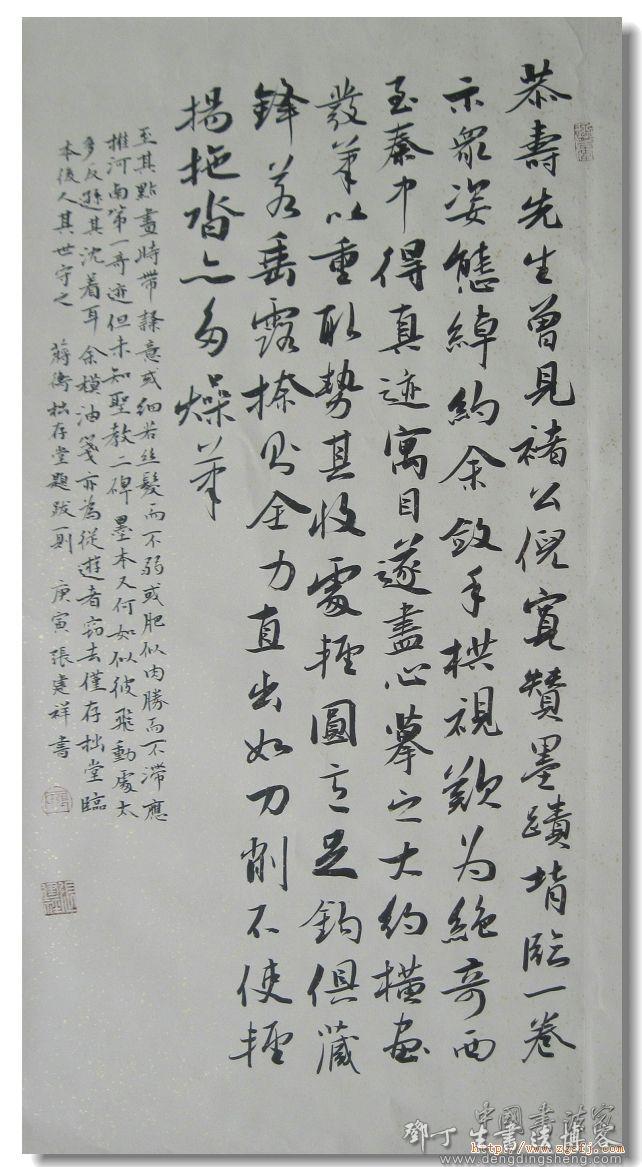 恭壽先生曾見褚公倪寬贊墨蹟背臨一卷
示眾姿態綽約余斂手拱視歎为絶奇西
至秦中得真迹寓目遂盡心摹之大約橫畫
發筆以重取勢其收處輕圓立足鈎俱藏
鋒若垂露捺則全力直出如刀削不使輕
揚拖沓亦多燥筆
至其點畫時帶隸意或细若丝髮而不弱或肥似肉勝而不滯應
推河南第一奇迹但未知聖教二碑墨本又何如似彼飛動處太
多反遜其沈着耳余模油箋亦為從遊者竊去僅存拙堂臨
本後人其世守之 蔣衡拙存堂題跋一則 庚寅張建祥書
中國書法家
http://www.zgsfj.com
鄧丁生書法博客
www.dengdingsheng.com